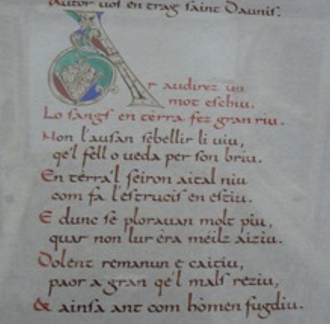 Autor vos en trag saint Daunis.
Ar audirez un
mot eschiu.
Lo sangs en tèrra fez gran riu.
Non l'ausan sebellir li viu,
qe'l fell o veda per son briu.
En tèrra'l feiron aital niu
com fa l'estrucis en estiu.
E dunc se ploravan molt piu,
quar non lur èra mèilz aiziu.
Dolent remanun e caitiu,
paor a gran qe'l mals reziu,
& ainsa ant com hòmen fugdiu.